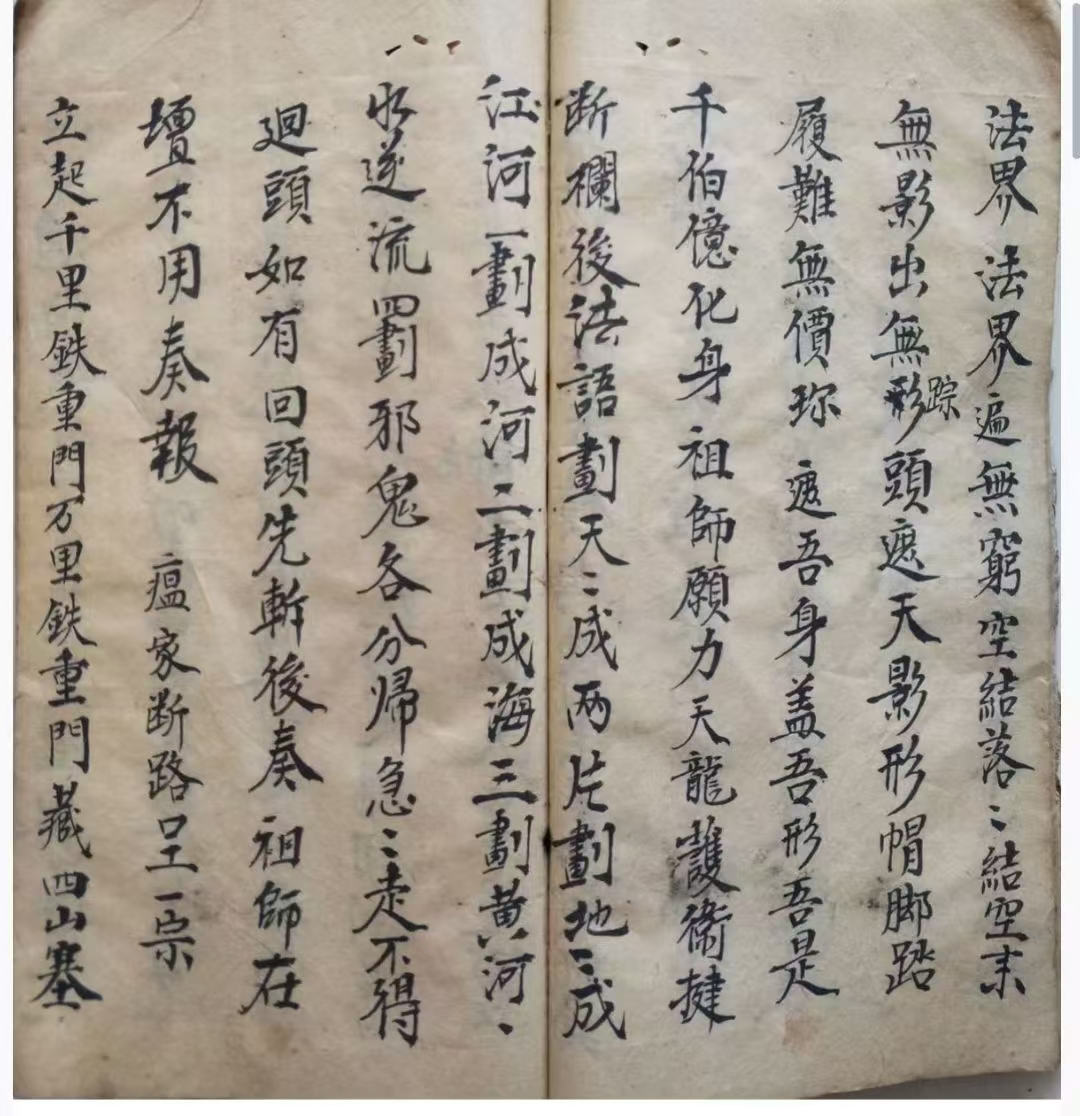 法界法界遍無窮空結落〻結空末
無影出無形踪頭遮天影形帽脚踏
履難無價珎 遮吾身盖吾形吾是
千伯億化身祖師願力天龍護衛揵
断欄後法語劃天〻成两片劃地〻成
江河一劃成河二劃成海三劃黄河〻
水逆流四劃邪鬼各分帰急〻走不得
廻頭如有回頭先斬後奏祖師在
壇不用奏報 瘟家断路呈一宗
立起千里鉄重門万里鉄重門藏四山塞